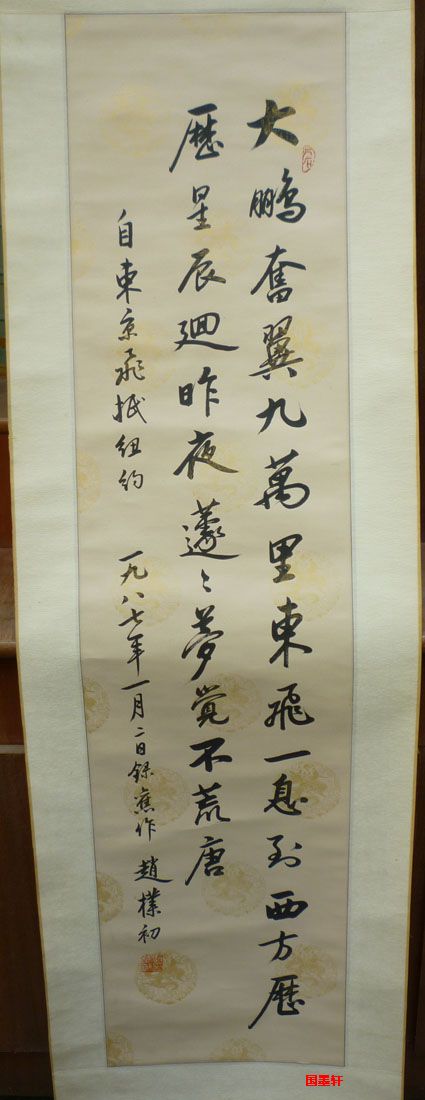 大鵬奮翼九萬里東飛一息到西方歷
歷星辰廻昨夜蘧〻夢覺不荒唐
自東京飛抵紐約 一九八七年一月二日錄舊作 趙樸初
国墨轩